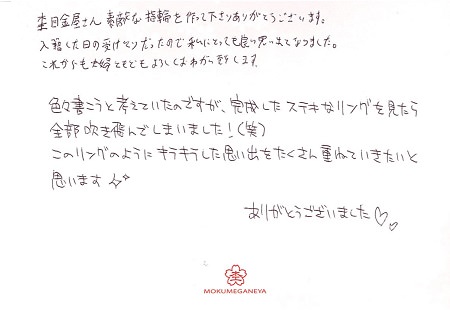 杢目金屋さん 素敵な指輪を作って下さりありがとうございます。
入籍した日の受けとりだったので私にとっても良い思い出となりました。
これからも夫婦ともどもよろしくおねがい致します。
色々書こうと考えていたのですが、完成したステキなリングを見たら
全部吹き飛んでしまいました!(笑)
このリングのようにキラキラした思い出をたくさん重ねていきたいと
思います
ありがとうございました♡♡
MOKUMEGANEYA